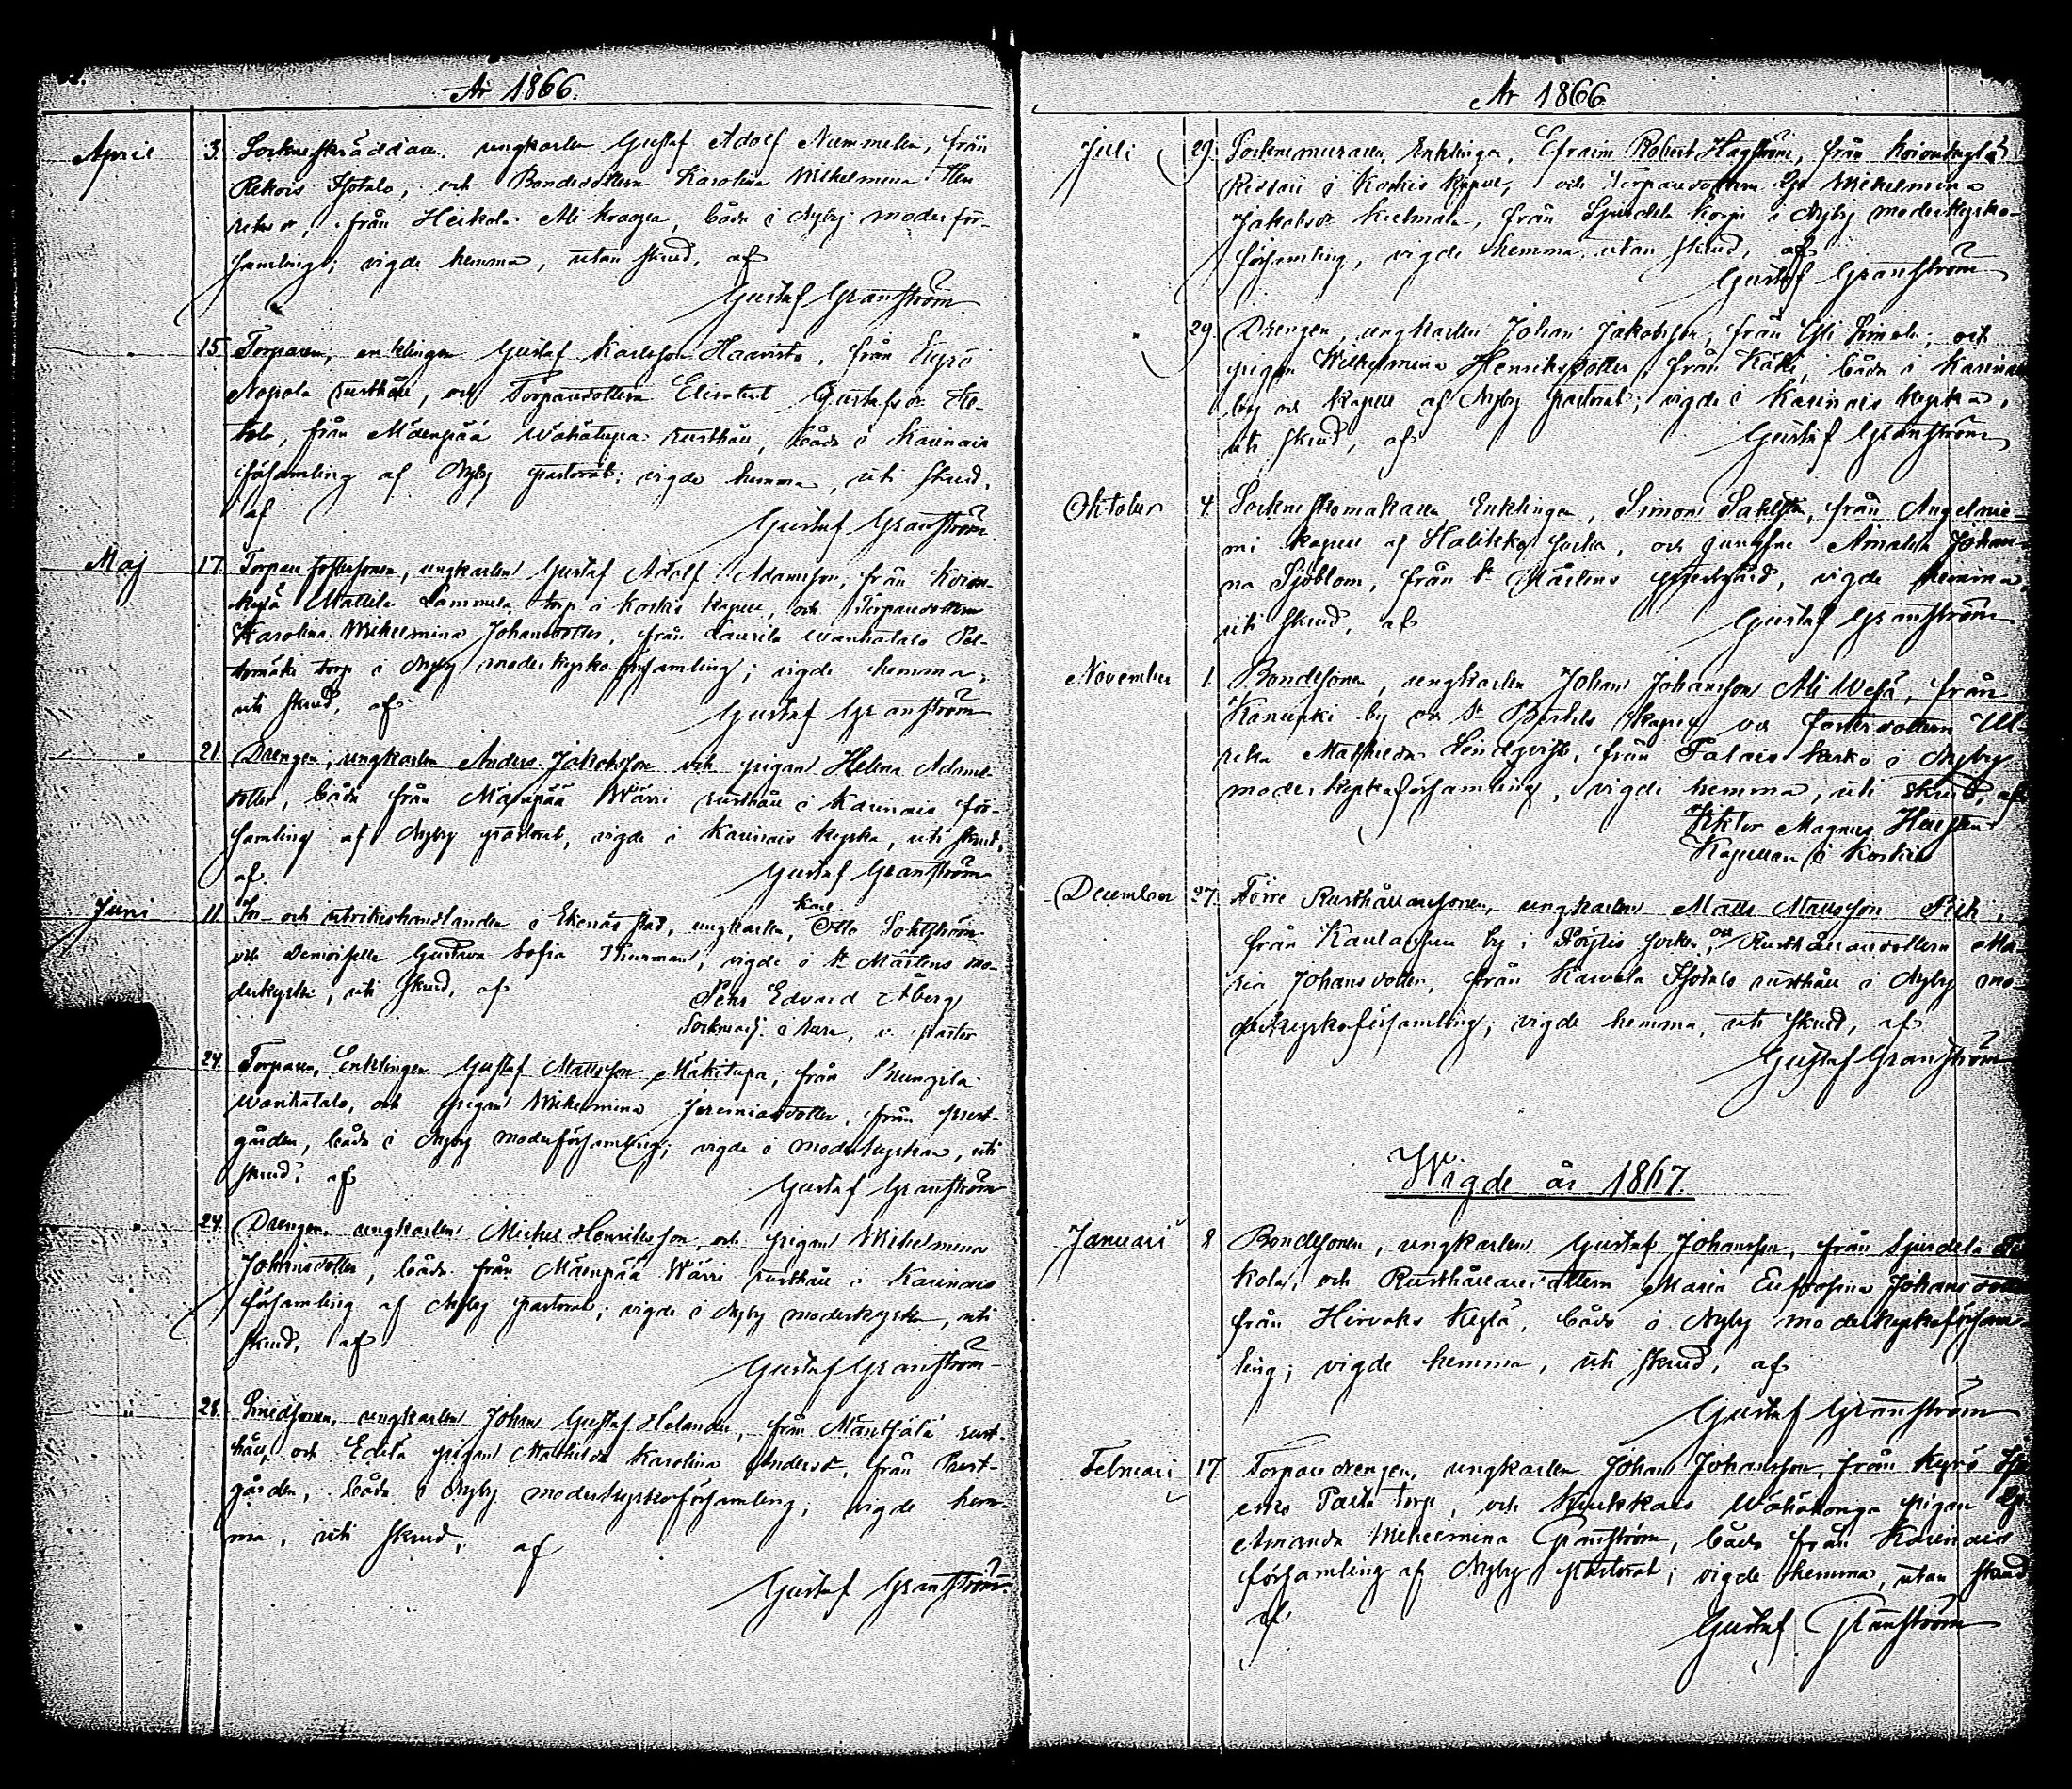 År 1866.
April 3. Sockneskräddaren, ungkarlen Gustaf Adolf Nummelin, från
Rekois Isotalo, och Bondedottern Karolina Wilhelmina Hen
riksdr, från Heikola Ali Kraaga, båda i Nyby moderför-
samling; vigde hemma, utan skrud, af
Gustaf Granström
15 Torparen, enklingen Gustaf Karlsson Haavisto, från Kyrö
Nopola rusthåll, och Torparedottern Elisabet Gustafsdr
från Mäenpää Wähätupa rusthåll, båda i Karinais
församling af Nyby pastorat; vigde hemma, uti skrud,
af
Gustaf Granström
Maj 17. ungkarlen Gustaf Adolf Adamsson, från Koivu
kylä Mattila Lammela torp i Koskis kapell, och Torparedottern
Karolina Wilhelmina Johansdotter, från Laurila Wanhatalo
torp i Nyby moderkyrkoförsamling; vigde hemma,
uti skrud, af
Gustaf Granström
21. Drengen, ungkarlen Anders Jakobsson och pigan Helena Adams
dotter, båda från Mäenpää Wärri rusthåll i Karinais för-
samling af Nyby pastorat, vigde i Karinais kyrka, uti skrud,
af
Gustaf Granström
Juni 11. In- och utrikeshandlanden i Ekenäs stad, ungkarlen, Karl Otto
och Demoiselle Gustava Sofia Thurman, vigde i St Mårtens mo-
derkyrka, uti skrud, af
Pehr Edvard Åberg
Sockneadj. i Aura, v. pastor
24. Torparen, Enklingen Gustaf Mattsson Mäkitupa, från
Wanhatalo, och pigan Wilhelmina Jeremiasdotter, från prest-
gården, båda i Nyby moderförsamling; vigde i moderkyrkan, uti
skrud, af
Gustaf Granström
24. Drengen, ungkarlen Michel Henriksson, och pigan Wilhelmina
Johansdotter, båda från Mäenpää Wärri rusthåll i Karinais
församling af Nyby pastorat; vigde i Nyby moderkyrka, uti
skrud, af
Gustaf Granström
28. Smedsonen, ungkarlen Johan Gustaf Helander, från Mäntsälä rust-
håll, och pigan Mathilda Karolina Andersdr, från Prest-
gården, båda i Nyby moderkyrkoförsamling; vigde hem-
ma, uti skrud, af
Gustaf Granström
År 1866
Juli 29. Socknemuraren, Enklingen, Efraim Robert Hagström, från Koivukylä
i Koskis kapell, och Torparedottern Eva Wilhelmina
Jakobsdr från Sjundela Korpi i Nyby moderkyrko-
församling, vigde hemma, utan skrud, af
Gustaf Granström
29. Drengen, ungkarlen Johan Jakobsson, från Yli Simola, och
pigan Wilhelmina Henriksdotter, från Käki, båda i Karinais
by och kapell af Nyby pastorat; vigde i Karinais kyrka,
uti skrud, af
Gustaf Granström
Oktober 4. Sockneskomakaren Enklingen, Simon från Angelnie-
mi kapell af Halikko socken, och jungfru Amalia Johan-
na Sjöblom, från St Mårtens prestgård, vigde hemma,
uti skrud, af
Gustaf Granström
November 1. Bondesonen, ungkarlen Johan Johansson Ali Wesä, från
by och St Bertils kapell och fosterdottern Ul-
rika Mathilda Lindqvist, från Talais Karko i Nyby
moderkyrkoförsamling, vigde hemma, uti skrud, af
Viktor Magnus
Kapellan i Koskis
December 27. Förre Rusthållaresonen, ungkarlen Matts Mattsson
från by i Pöytis socken, och Rusthållaredottern Ma-
ria Johansdotter, från Karvela Isotalo rusthåll i Nyby mo-
derkyrkoförsamling; vigde hemma, uti skrud, af
Gustaf Granström
Wigde år 1867.
Januari 8 Bondesonen, ungkarlen Gustaf Johansson, från Sjundela
kola, och Rusthållaredottern Maria Eufrosina Johansdotter
från Hirvaks Kylä, båda i Nyby moderkyrkoförsam-
ling; vigde hemma, uti skrud, af
Gustaf Granström
Februari 17 Torparedrengen, ungkarlen Johan Johansson, från Kyrö
torp, och Kiukkais Wähätonga pigan
Amanda Wilhelmina Granström, båda från Karinais
församling af Nyby pastorat; vigde hemma, utan skrud
af
Gustaf Granström